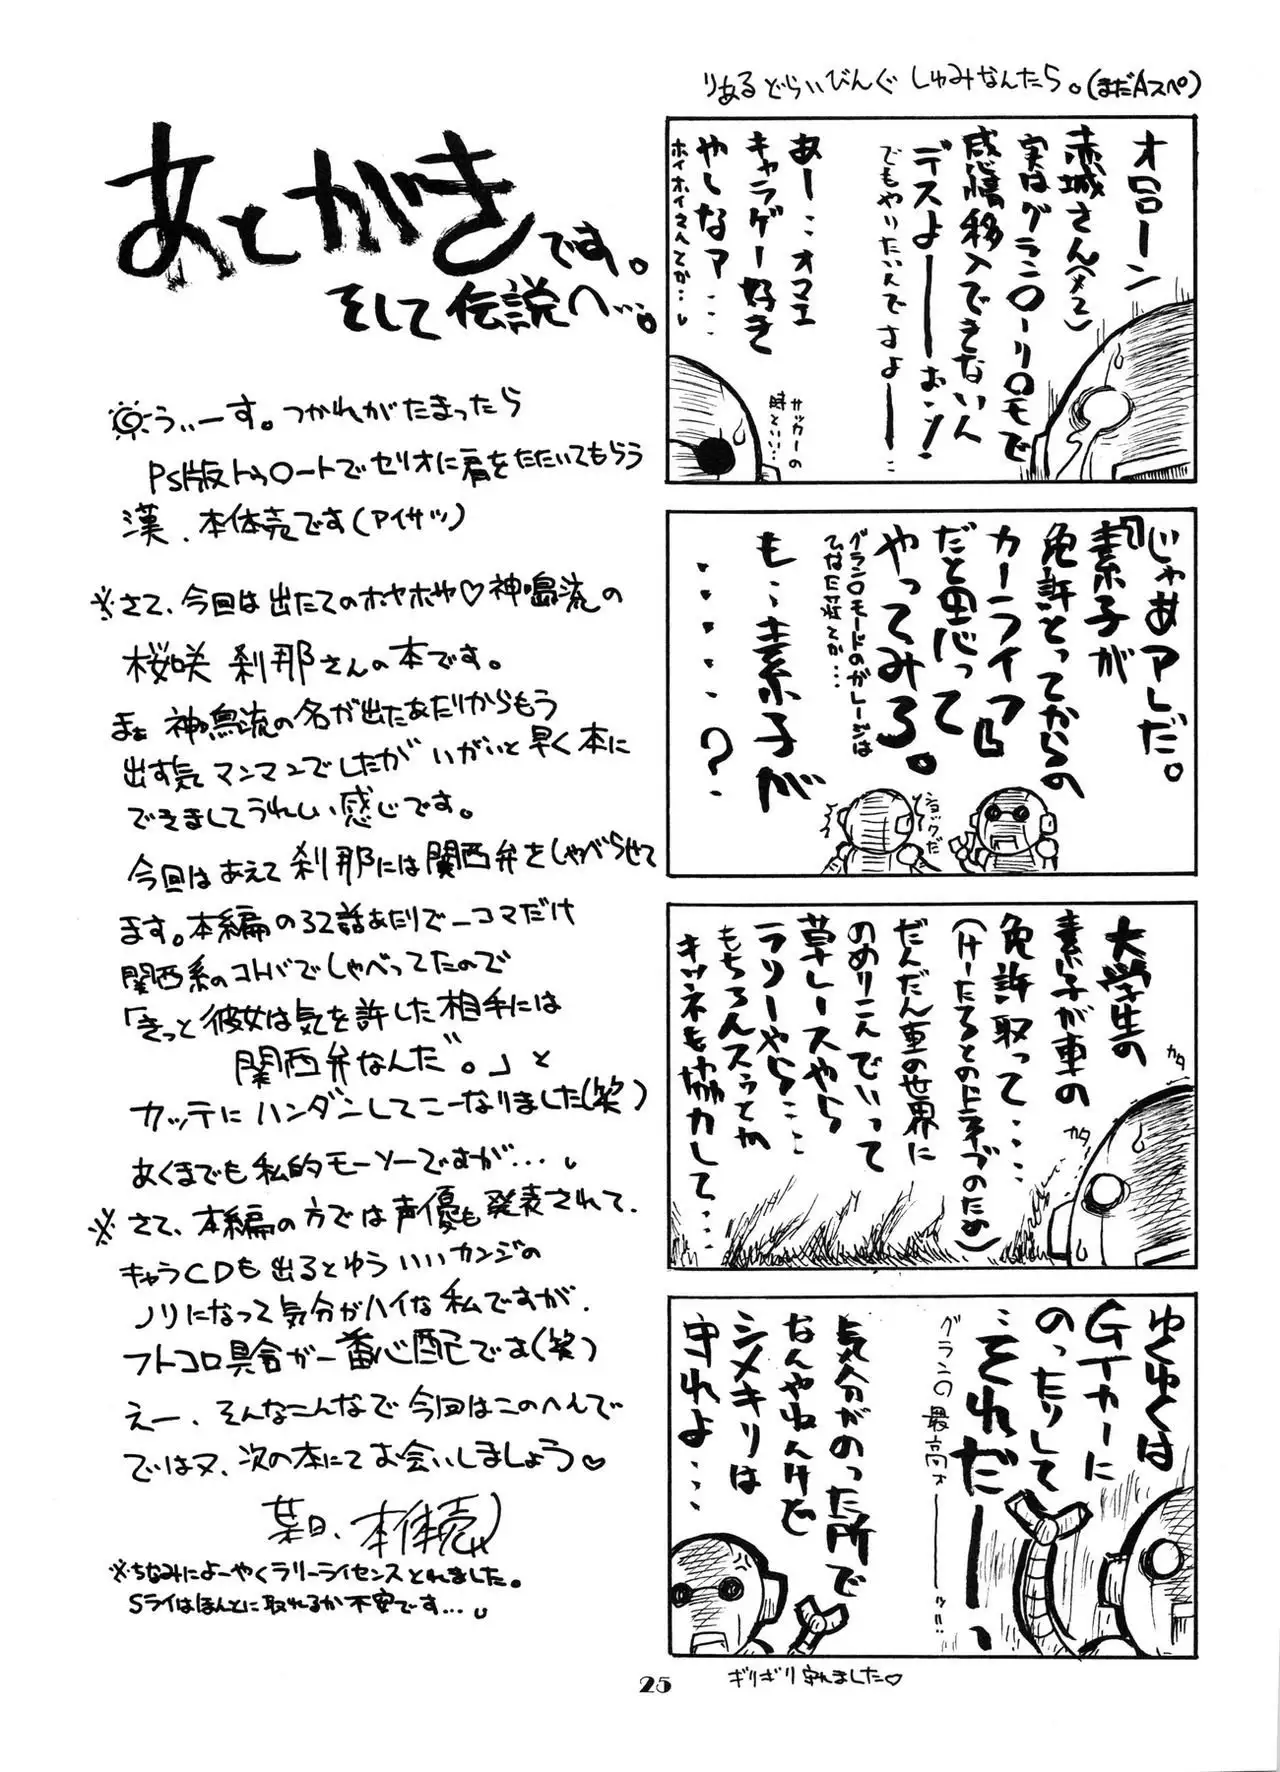 あとがきです。
そして伝説へ…。
うぃーす。つかれがたまったら
PS版トゥロートでセリオに肩をたたいてもらう
漢、本体売です(アイサツ)
※さて、今回は出たてのホヤホヤ♡神鳴流の
桜咲 刹那さんの本です。
まぁ神鳴流の名が出たあたりからもう
出す気マンマンでしたがいがいと早く本に
できましてうれしい感じです。
今回はあえて刹那には関西弁をしゃべらせて
ます。本編の32話あたりで一コマだけ
関西系のコトバでしゃべってたので
「きっと彼女は気を許した相手には
関西弁なんだ。」と
カッテにハンダンしてこーなりました(笑)
あくまでも私的モーソーですが…。
※さて、本編の方では声優も発表されて、
キャラCDも出るとゆういいカンジの
ノリになって気分がハイな私ですが、
フトコロ具合が一番心配です(笑)
えー、そんなこんなで今回はこのへんで
ではヌ、次の本にてお会いしましょう♡
某日、本体売
※ちなみによーやくラリーライセンスとれました。
Sライはほんとに取れるか不安です…。
りある どらいびんぐ しゅみなんたら。(まだAスペ)
オローン
赤城さん(メマ)
実はグランツーリロモで
感情移入できないん
デスよーーーおン!
でもやりたいんですよーーー
あー…オマエ
キャラゲー好き
やしなァ…
ホイホイさんとか…
サッカーの
時といい…
『じゃあアレだ。
素子が
免許とってからの
カーライフ』
だと思って
やってみろ。
グランツロモードのガレージは
ひなた荘とか…
も…素子が
‥‥?
ショックだ
大学生の
素子が車の
免許取って…
(けーたろとのドライブのため)
だんだん車の世界に
のめりこんでいって
草レースやら
ラリーやら…
もちろんスゥとか
キツネも協力して…
カタ
カタ
ゆくゆくは
GTカーに
のったりして
…それだーーっ
グランの最高ォーーーッ!!
気分がのった所で
なんやねんけど
シメキリは
守れよ…
ギリギリ守れました♡
25